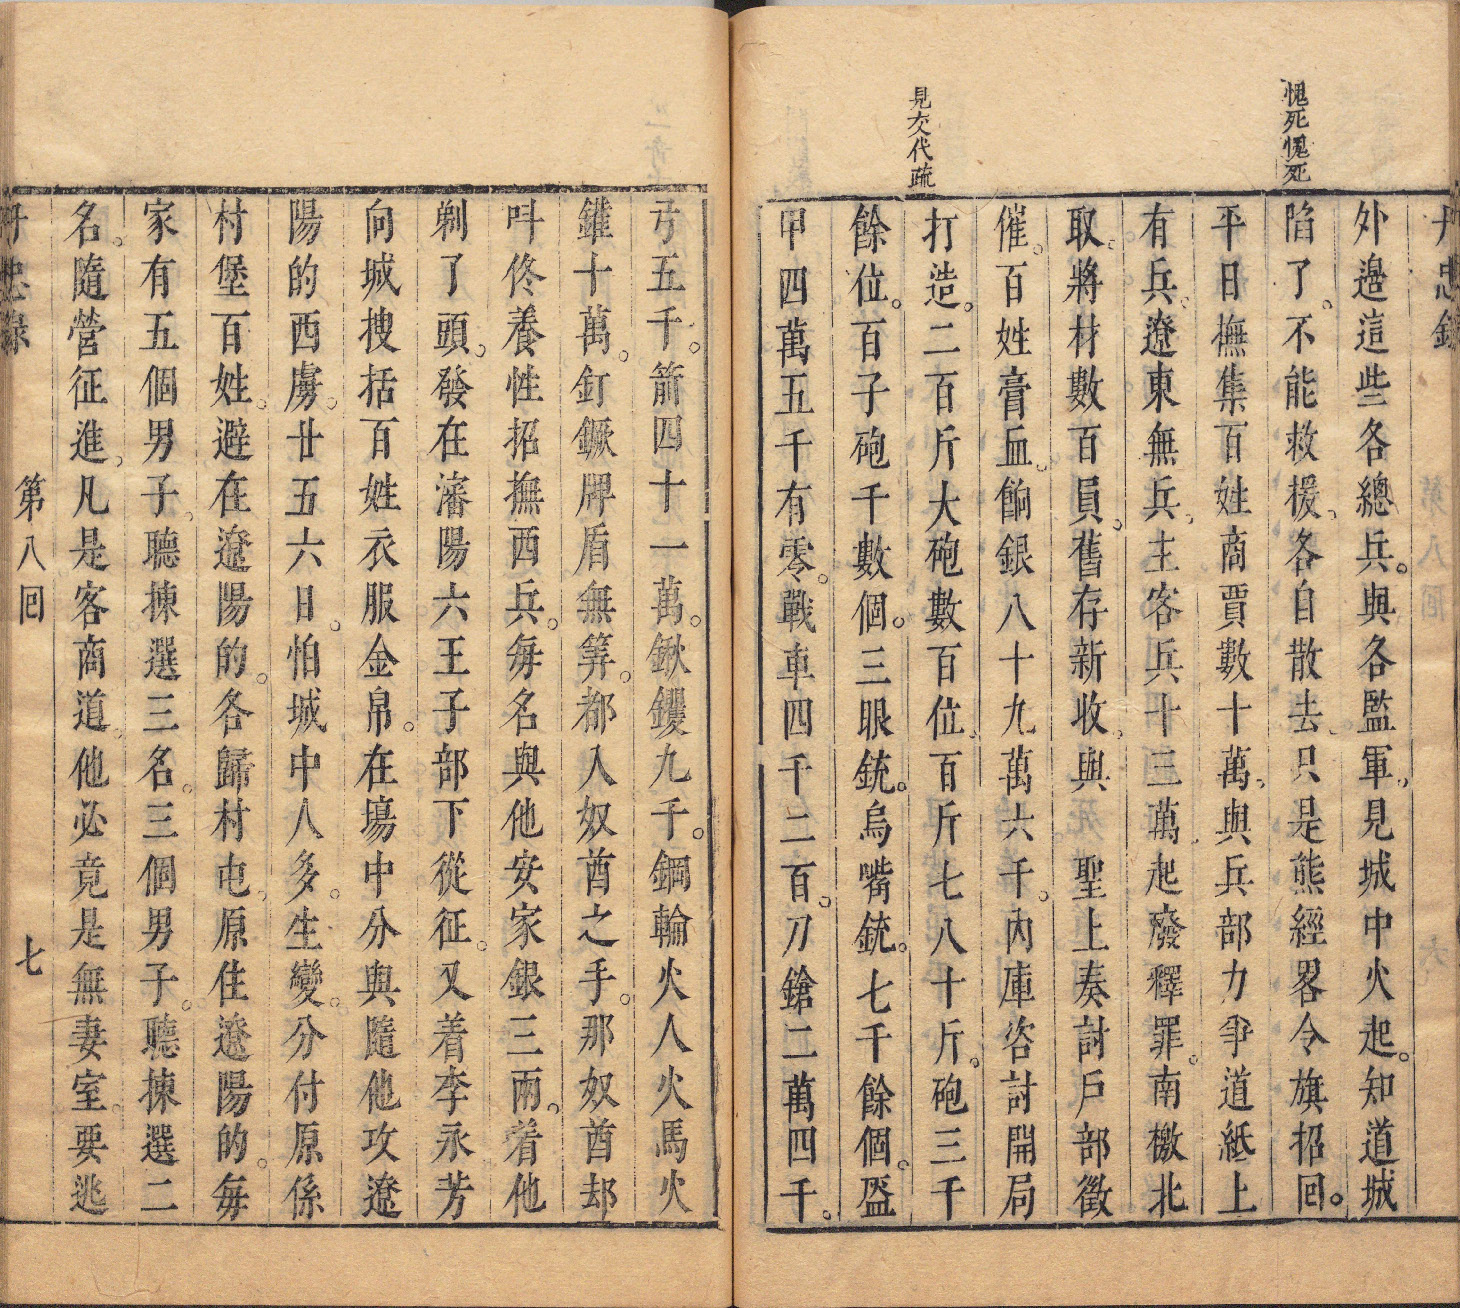 丹忠錄
外邊這些各總兵。與各監軍。見城中火起。知道城
愧死愧死
陷了。不能救援。各自散去。只是熊經畧令旗招回。
平日撫集百姓商賈數十萬。與兵部力爭道紙上
有兵。遼東無兵。主客兵十三萬。起廢釋罪。南檄北
取。將材數百員。舊存新收。與 聖上奏討戶部徵
催。百姓膏血。餉銀八十九萬六千。內庫咨討開局
見交代疏
打造。二百斤大砲數百位。百斤七八十斤。砲三千
餘位。百子砲千數個。三眼銃。烏嘴銃。七千餘個。盔
甲四萬五千有零。戰車四千二百。刀鎗二萬四千。
弓五千。箭四十一萬。鍬钁九千。鋼輪火人火馬火
鑵十萬。釘鐝牌盾無筭。都入奴酋之手。那奴酋却
呌佟養性招撫西兵。每名與他安家銀三兩。着他
剃了頭。發在瀋陽六王子部下從征。又着李永芳
向城搜括百姓衣服金帛。在塲中分與隨他攻遼
陽的西虜。廿五六日。怕城中人多。生變。分付原係
村堡百姓。避在遼陽的。各歸村屯。原住遼陽的。每
家有五個男子。聽揀選三名。三個男子。聽揀選二
名。隨營征進。凡是客商道。他必竟是無妻室。要逃
丹忠錄 第八回 七